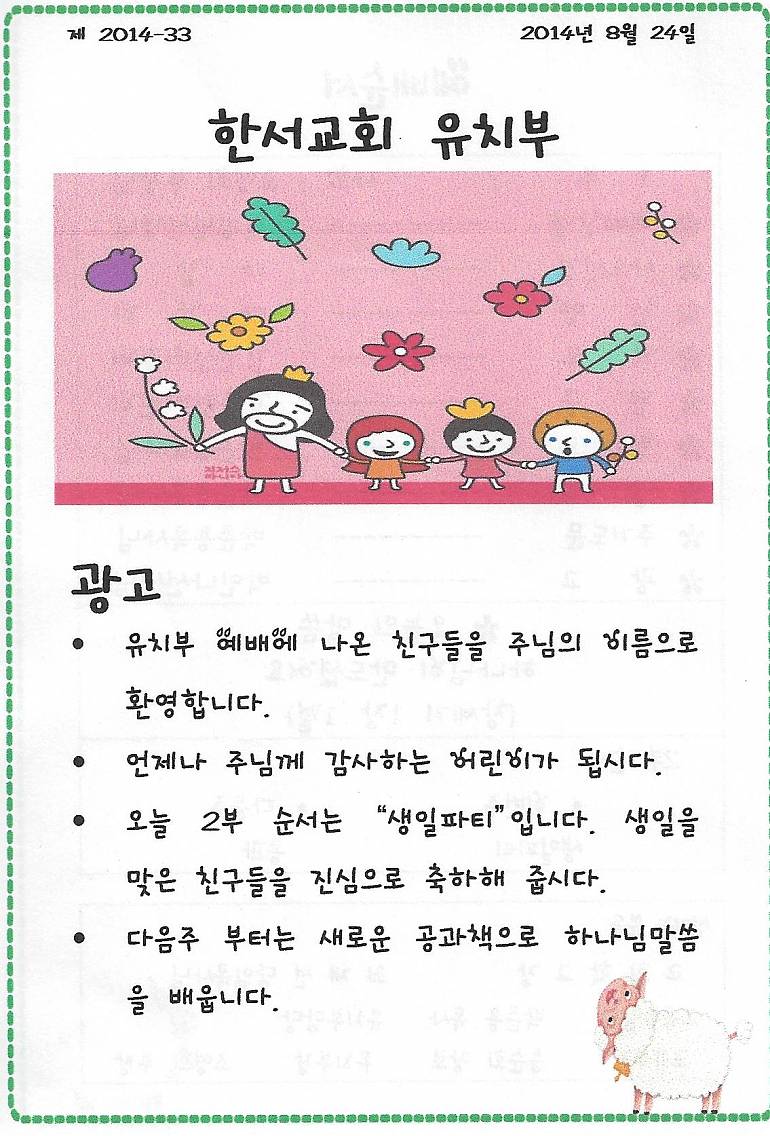 제 2014-33 2014년 8월 24일
한서교회 유치부
광고
• 유치부 예배에 나온 친구들을 주님의 이름으로
환영합니다.
• 언제나 주님께 감사하는 어린이가 됩시다.
• 오늘 2부 순서는 “생일파티”입니다. 생일을
맞은 친구들을 진심으로 축하해 줍시다.
• 다음주 부터는 새로운 공과책으로 하나님말씀
을 배웁니다.